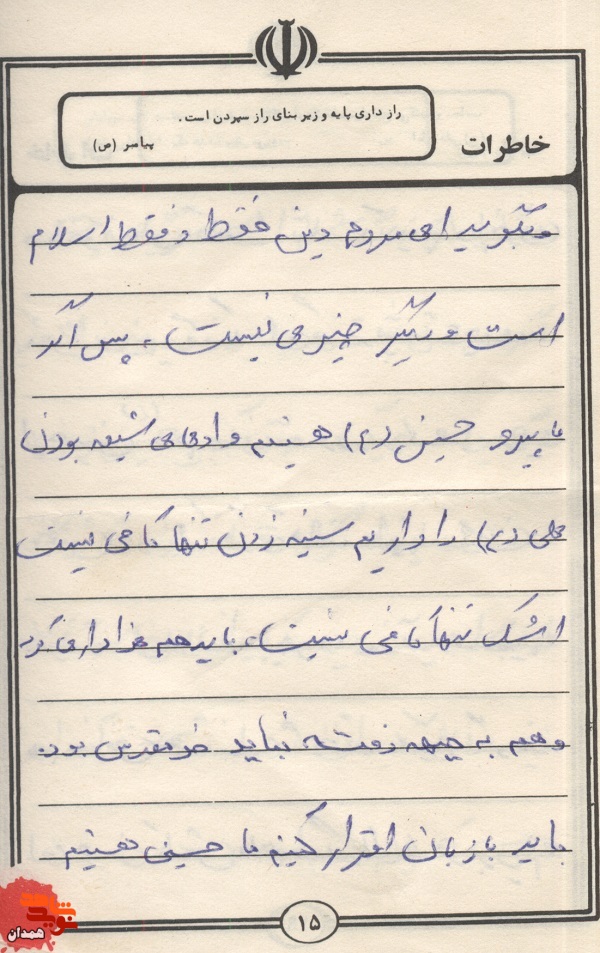 رازداری پایه و زیر بنای راز سپردن است.
پیامبر (ص)
خاطرات
و بگویید ای مردم دین فقط و فقط اسلام
است و دیگر چیزی نیست، پس اگر
ما پیرو حسین (ع) هستیم و ادعای شیعه بودن
علی (ع) را داریم سینه زدن تنها کافی نیست
اشک تنها کافی نیست، باید هم عزاداری کرد
و هم به جبهه رفت، نباید خر مقدس بود.
باید با زبان اقرار کنیم ما حسینی هستیم
۱۵
نوید شاهد
همدان